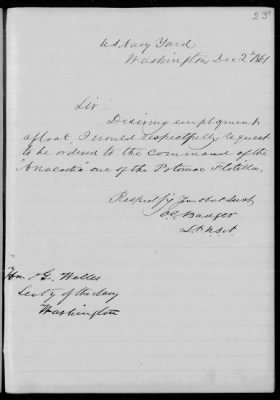 23
U.S. Navy Yard
Washington Dec 2d 1861
Sir
Desiring employment
afloat, I would respectfully request
to be ordered to the command of the
"Anacostia" one of the Potomac Flotilla.
Respectfly Your obdt Servt
O.C. Badger
Lt U.S.N
Hon. G. Welles
Secty of the Navy
Washington